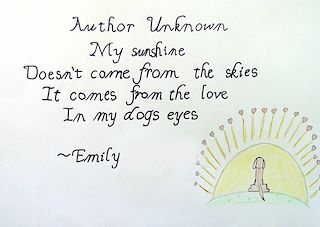 Author Unknown
My sunshine
Doesn't come from the skies
It comes from the love
In my dogs eyes
~Emily